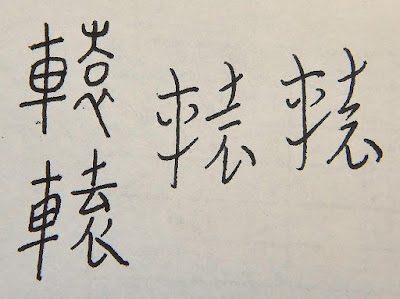 轅
轅
轅
轅